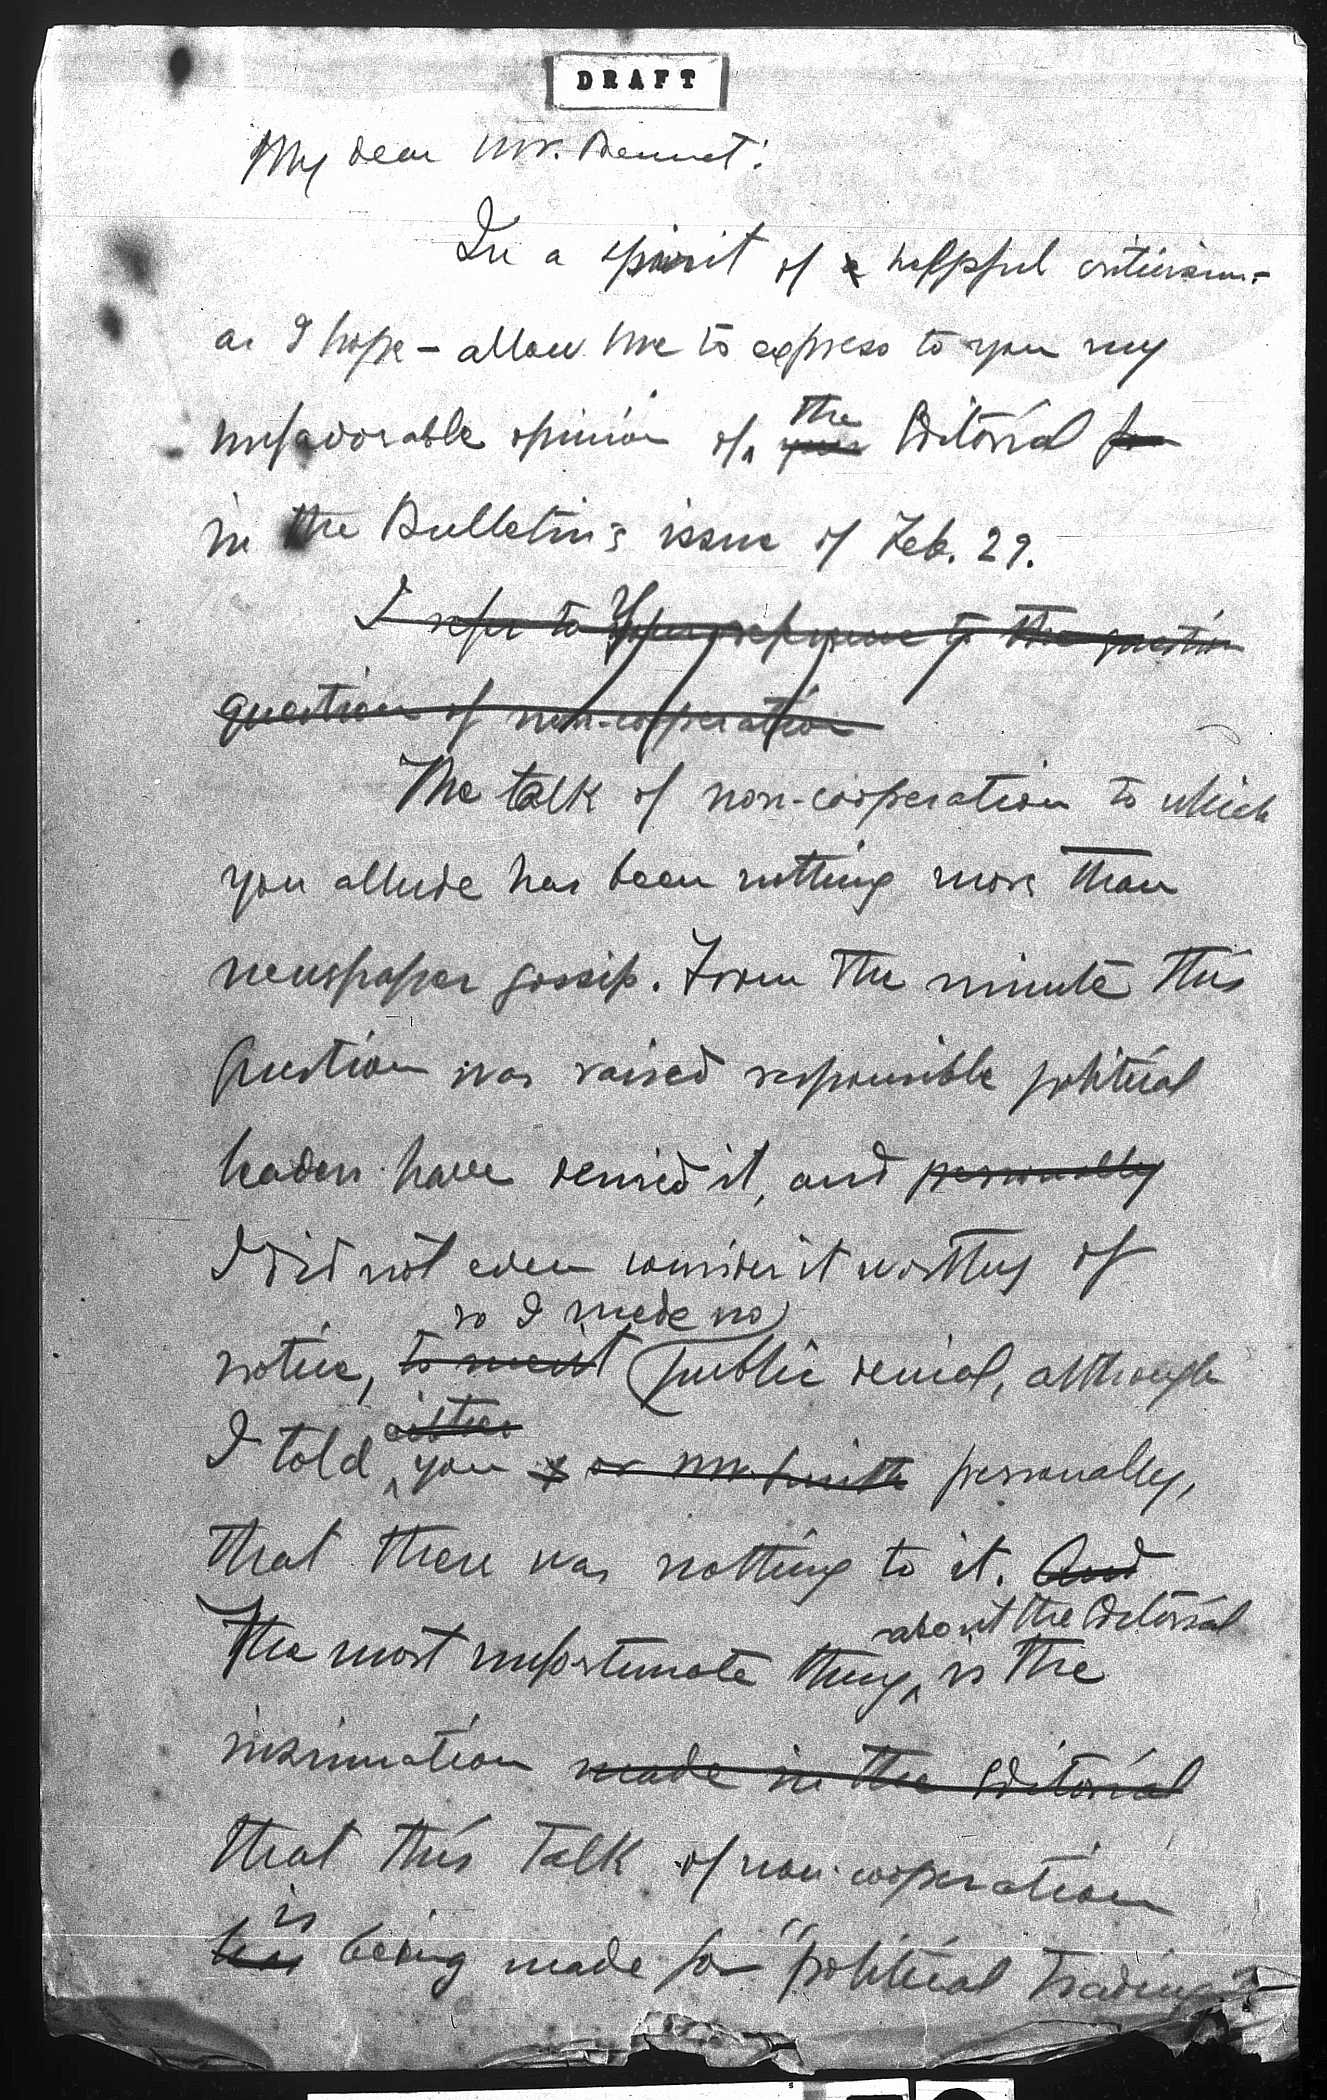 DRAFT
My dear Mr. Bennet:
In a spirit of a helpful criticism -
as I hope - allow me to express to you my
the
unfavorable opinion of your Editorial for
in the Bulletin's issue of Feb. 29.
I refer to Your reference to the question
question of non-cooperation
The talk of non-cooperation to which
you allude has been nothing more than
newspaper gossip. From the minute this
question was raised responsible political
leaders have denied it, and personally
I did not even consider it worthy of
so I made no
notice, to merit public denial, although
either
I told you or Mr. Smith personally,
that there was nothing to it. And
about the Editorial
The most unfortunate thing is the
insinuation made in the Editorial
that this talk of non-cooperation
is
has being made for "political trading"